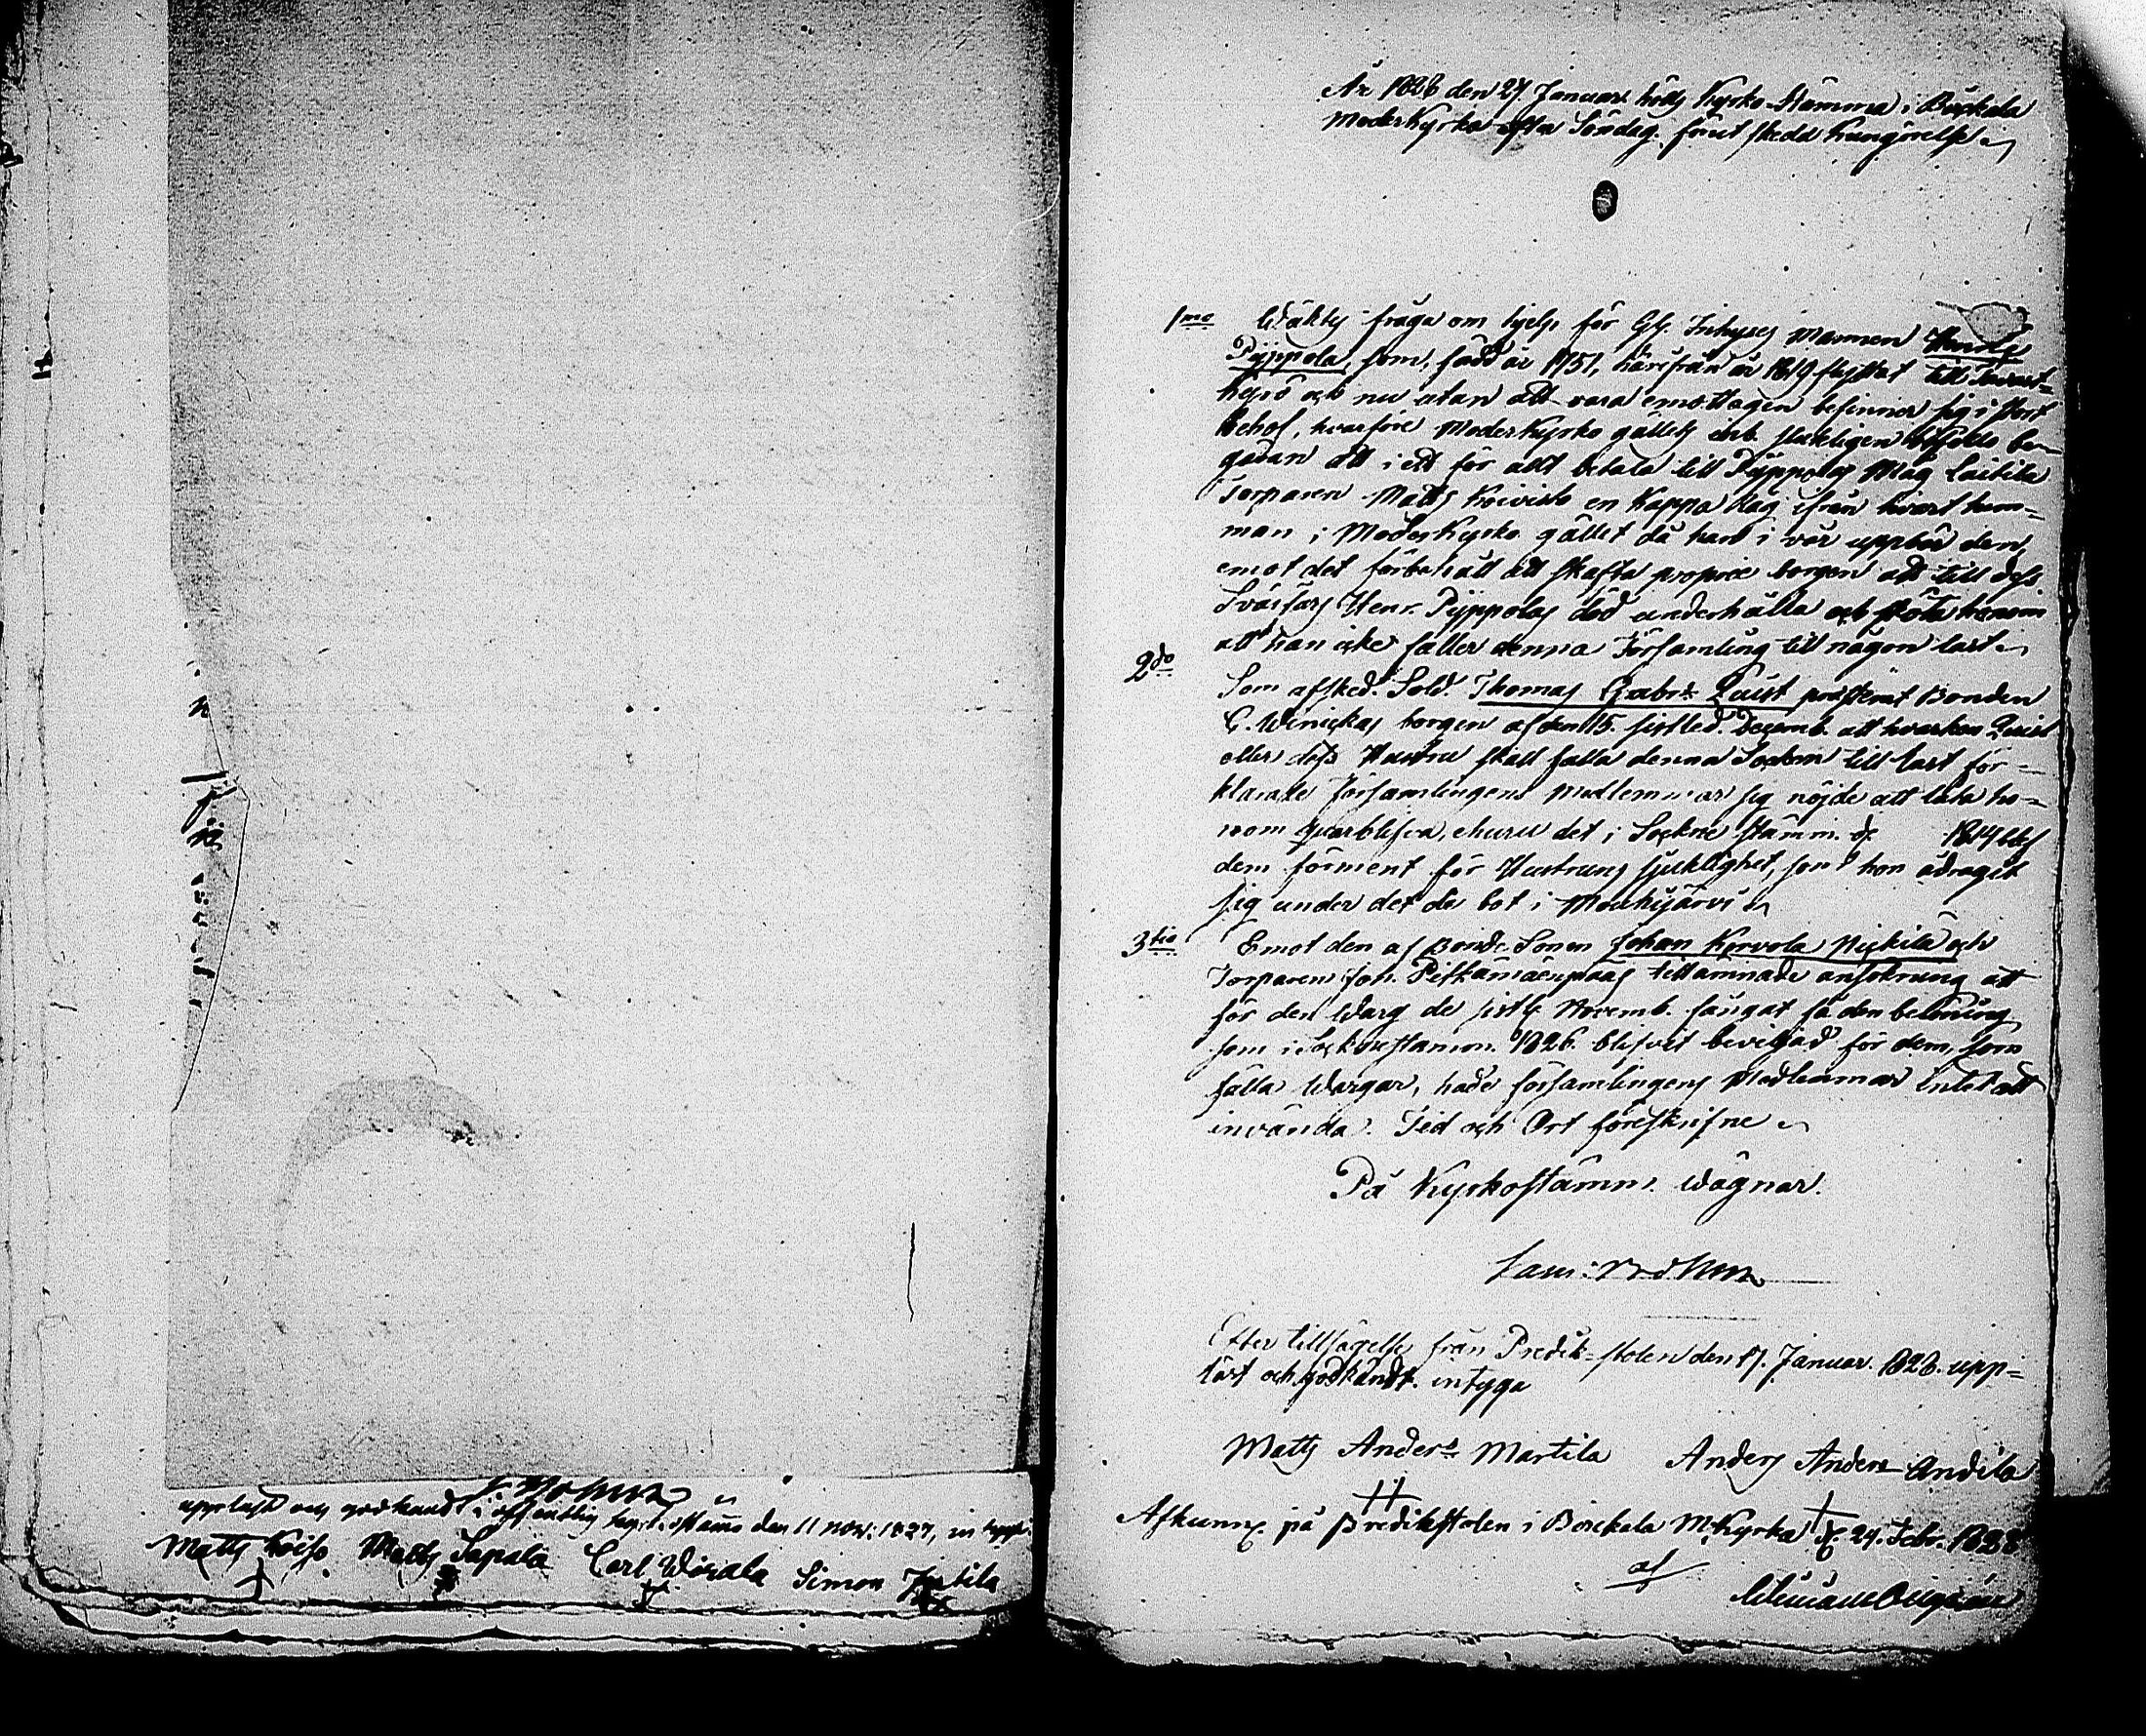 uppläst och godkändt i offentlig kyrkostäma den 11 Nov: 1827, intyga:
Matts Koiso Matts Sapala Carl Wärala Simon
År 1828 den 27. Januari hölls Kyrko-Stämma i Birkala
Moderkyrka efter Söndag. förut skedd kungörelse
1mo Wäktes fråga om hjelp för Gl. Inhyses Mannen Henric
Pyppola, som, född år 1751, härifrån år 1819 flyttat till
och nu utan att vara emottagen befinner sig i stort
behof, hvarföre Moderkyrko gällets be-
att i ett för allt betala till Pyppolas Måg Laitila
Torparen Matts Koivisto en Kappa Råg ifrån hvart hem-
man i Moderkyrko gället då han i vår uppbär den,
emot det förbehåll att skaffa proprie borgen att till dess
Svärfars Henr. Pyppolas död underhålla och sköta honom
att han icke faller denna Församling till någon last.
2do Som afsked. Sold. Thomas Gabr. Quist presterat Bonden
C. Winickas borgen af den 15. sistled. Decemb. att hvarken Quist
eller dess Hustru skall falla denna Socken till last för-
klarade Församlingens medlemmar sig nöjde att låta ho-
nom quarblifva, ehuru det i Sockne stämm. d. 1814 blef
dem förment för Hustruns sjuklighet, som hon ådragit
sig under det de bot i Mouhijärvi
3tio Emot den af Bonde Sonen Johan Korvola Nickilä och
Torparen Joh. Piskämäenpääs tillämnade ansökning att
för den Warg de sistl. Novemb. fångat få den belöning
som i Socknestämm. 1826. blifvit beviljad för dem, som
fälla Wargar, hade församlingens Medlemmar intet att
invända. Tid och Ort föreskrifne
På Kyrkostämm. wägnar.
Efter tillsägelse från Predik-stolen den 17. Januar. 1828. upp-
läst och godkändt. intyga
Matts Anders Martila Anders Anders Andila
Afkunn. på Predikstolen i Birckala M.Kyrka d. 24. Febr. 1828
af